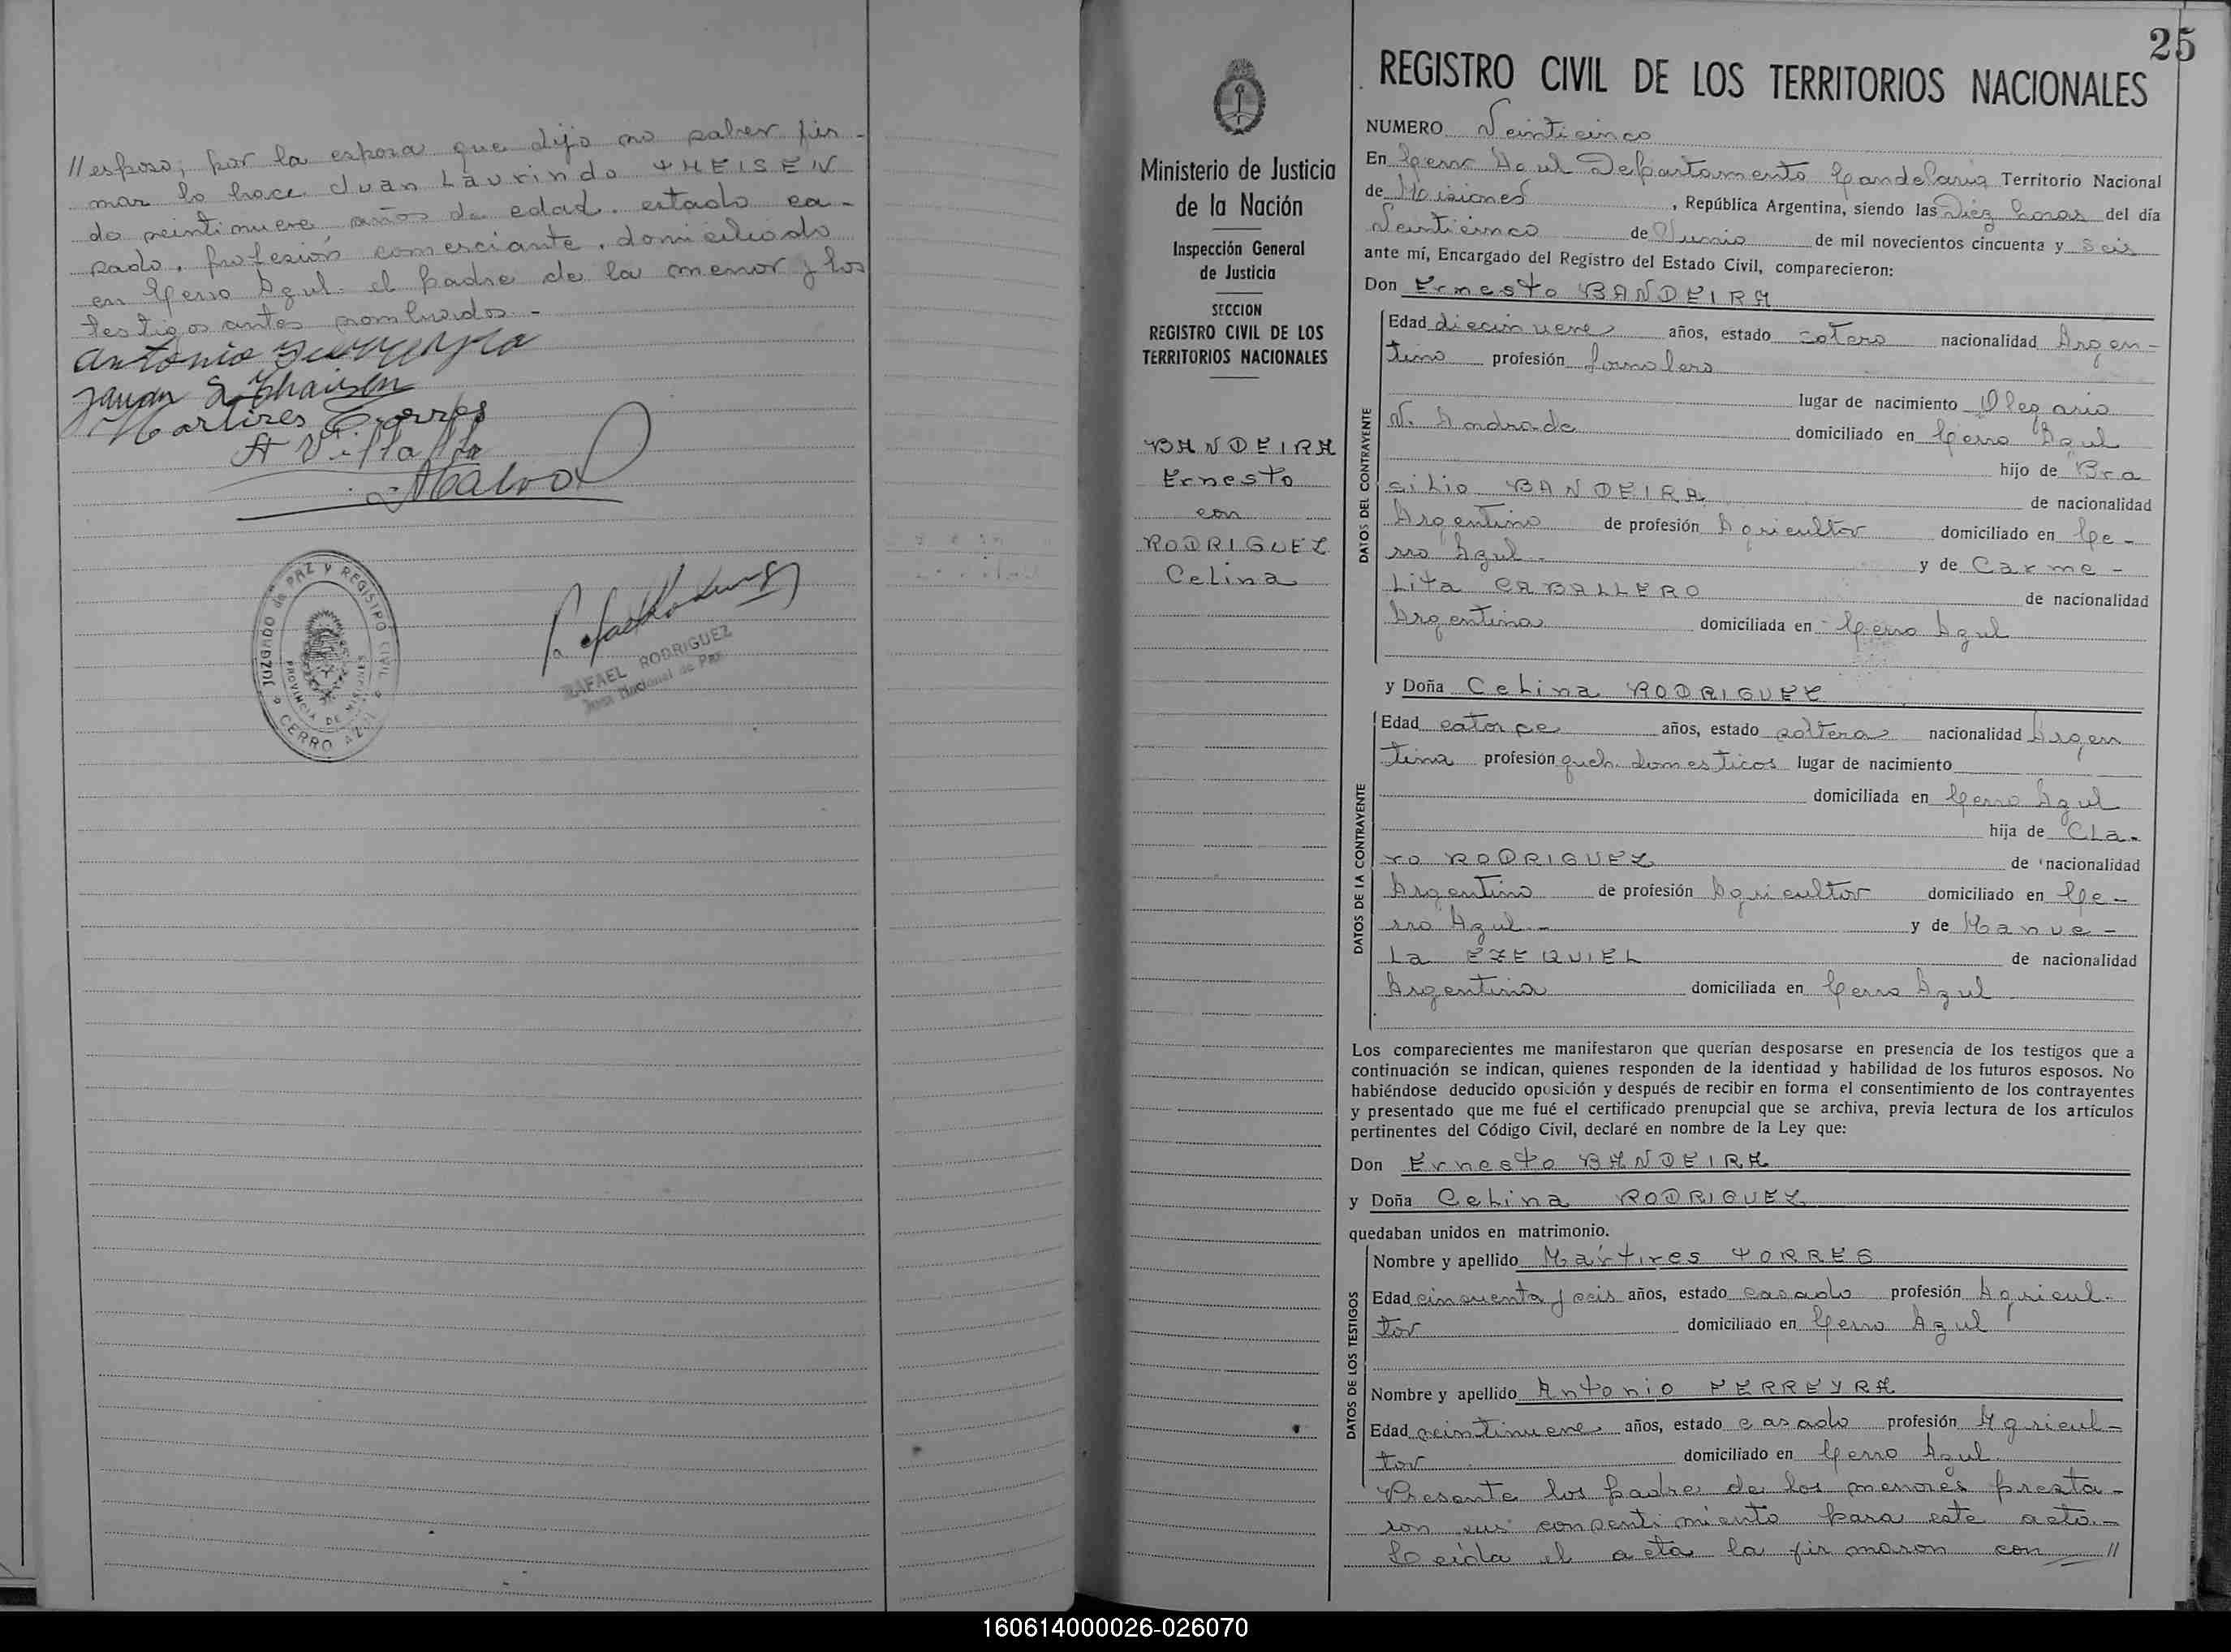 //esposo; por la esposa que dijo no saber fir-
mar lo hace Juan Laurindo THEISEN
de veintinueve años de edad. estado ca-
sado, profesión comerciante, domiciliado
en Cerro Azul. el padre de la menor y los
testigos antes nombrados -
Antonio
Juan L
Martires Torres
A Villalba
JUZGADO de PAZ Y REGISTRO CIVIL
PROVINCIA DE MISIONES
CERRO AZUL
RAFAEL RODRIGUEZ
Juez Nacional de Paz
25
Ministerio de Justicia
de la Nación
Inspección General
de Justicia
SECCION
REGISTRO CIVIL DE LOS
TERRITORIOS NACIONALES
BANDEIRA
Ernesto
con
RODRIGUEZ
Celina
REGISTRO CIVIL DE LOS TERRITORIOS NACIONALES
NUMERO Veinticinco
En Cerro Azul Departamento Candelaria Territorio Nacional
de Misiones, República Argentina, siendo las Diez horas del día
Veinticinco de Junio de mil novecientos cincuenta y seis
ante mí, Encargado del Registro del Estado Civil, comparecieron:
Don Ernesto BANDEIRA
DATOS DEL CONTRAYENTE
Edad diecinueve años, estado soltero nacionalidad Argen-
tino profesión Jornalero
lugar de nacimiento Olegario
V. Andrade domiciliado en Cerro Azul
hijo de Bra
silio BANDEIRA de nacionalidad
Argentino de profesión Agricultor domiciliado en Ce-
rro Azul - y de Carme-
Lita CABALLERO de nacionalidad
Argentina domiciliada en Cerro Azul
y Doña Celina RODRIGUEZ
DATOS DE LA CONTRAYENTE
Edad catorce años, estado soltera nacionalidad Argen
tina profesión queh. domesticos lugar de nacimiento
domiciliada en Cerro Azul
hija de Cla-
ro RODRIGUEZ de nacionalidad
Argentino de profesión Agricultor domiciliado en Ce-
rro Azul - y de Manue-
la EZEQUIEL de nacionalidad
Argentina domiciliada en Cerro Azul
Los comparecientes me manifestaron que querían desposarse en presencia de los testigos que a
continuación se indican, quienes responden de la identidad y habilidad de los futuros esposos. No
habiéndose deducido oposición y después de recibir en forma el consentimiento de los contrayentes
y presentado que me fué el certificado prenupcial que se archiva, previa lectura de los artículos
pertinentes del Código Civil, declaré en nombre de la Ley que:
Don Ernesto BANDEIRA
y Doña Celina RODRIGUEZ
quedaban unidos en matrimonio.
DATOS DE LOS TESTIGOS
Nombre y apellido Mártires TORRES
Edad cincuenta y seis años, estado casado profesión Agricul-
tor domiciliado en Cerro Azul
Nombre y apellido Antonio FERREYRA
Edad veintinueve años, estado casado profesión Agricul-
tor domiciliado en Cerro Azul.
Presente los padre de los menores presta-
ron sus consentimiento para este acto.-
Leida el acta la firmaron con //
160614000026-026070